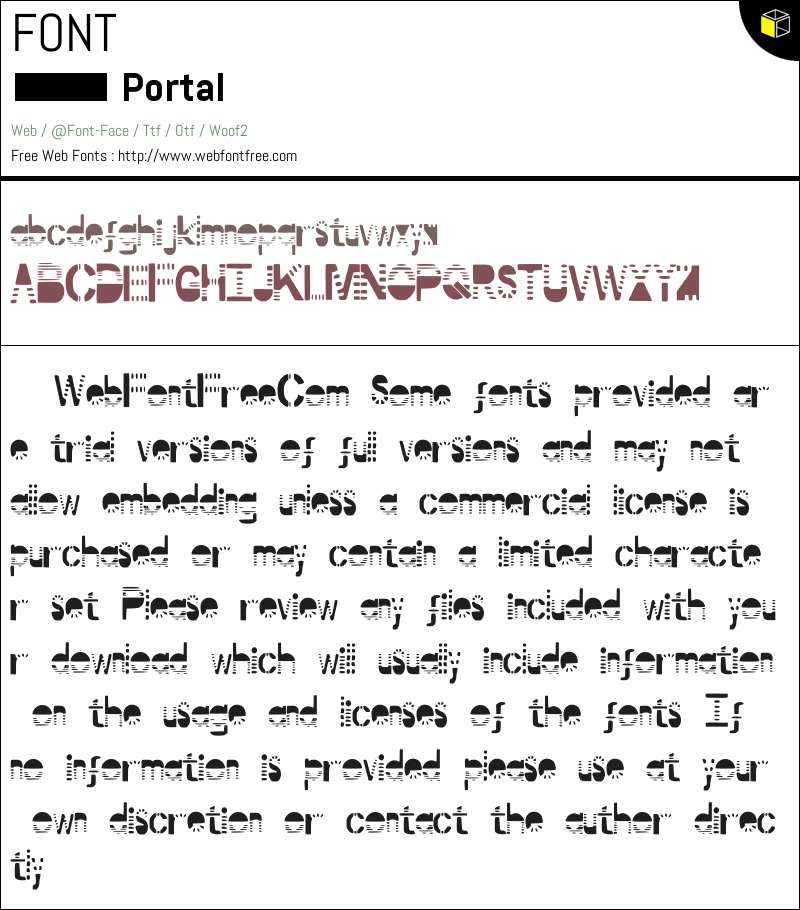 FONT
Portal
Web / @Font-Face / Ttf / Otf / Woof2
Free Web Fonts : http://www.webfontfree.com
abcdefghijklmnopqrstuvwxyz
ABCDEFGHIJKLMNOPQRSTUVWXYZ
WebFontFreeCom Some fonts provided ar
e trial versions of full versions and may not
allow embedding unless a commercial license is
purchased or may contain a limited characte
r set Please review any files included with you
r download which will usually include information
on the usage and licenses of the fonts If
no information is provided please use at your
own discretion or contact the author direc
tly